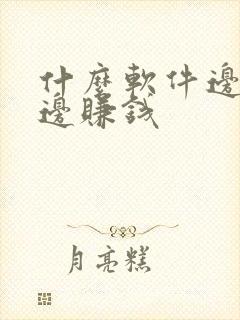 什麼軟件邊
邊賺錢
月亮糕